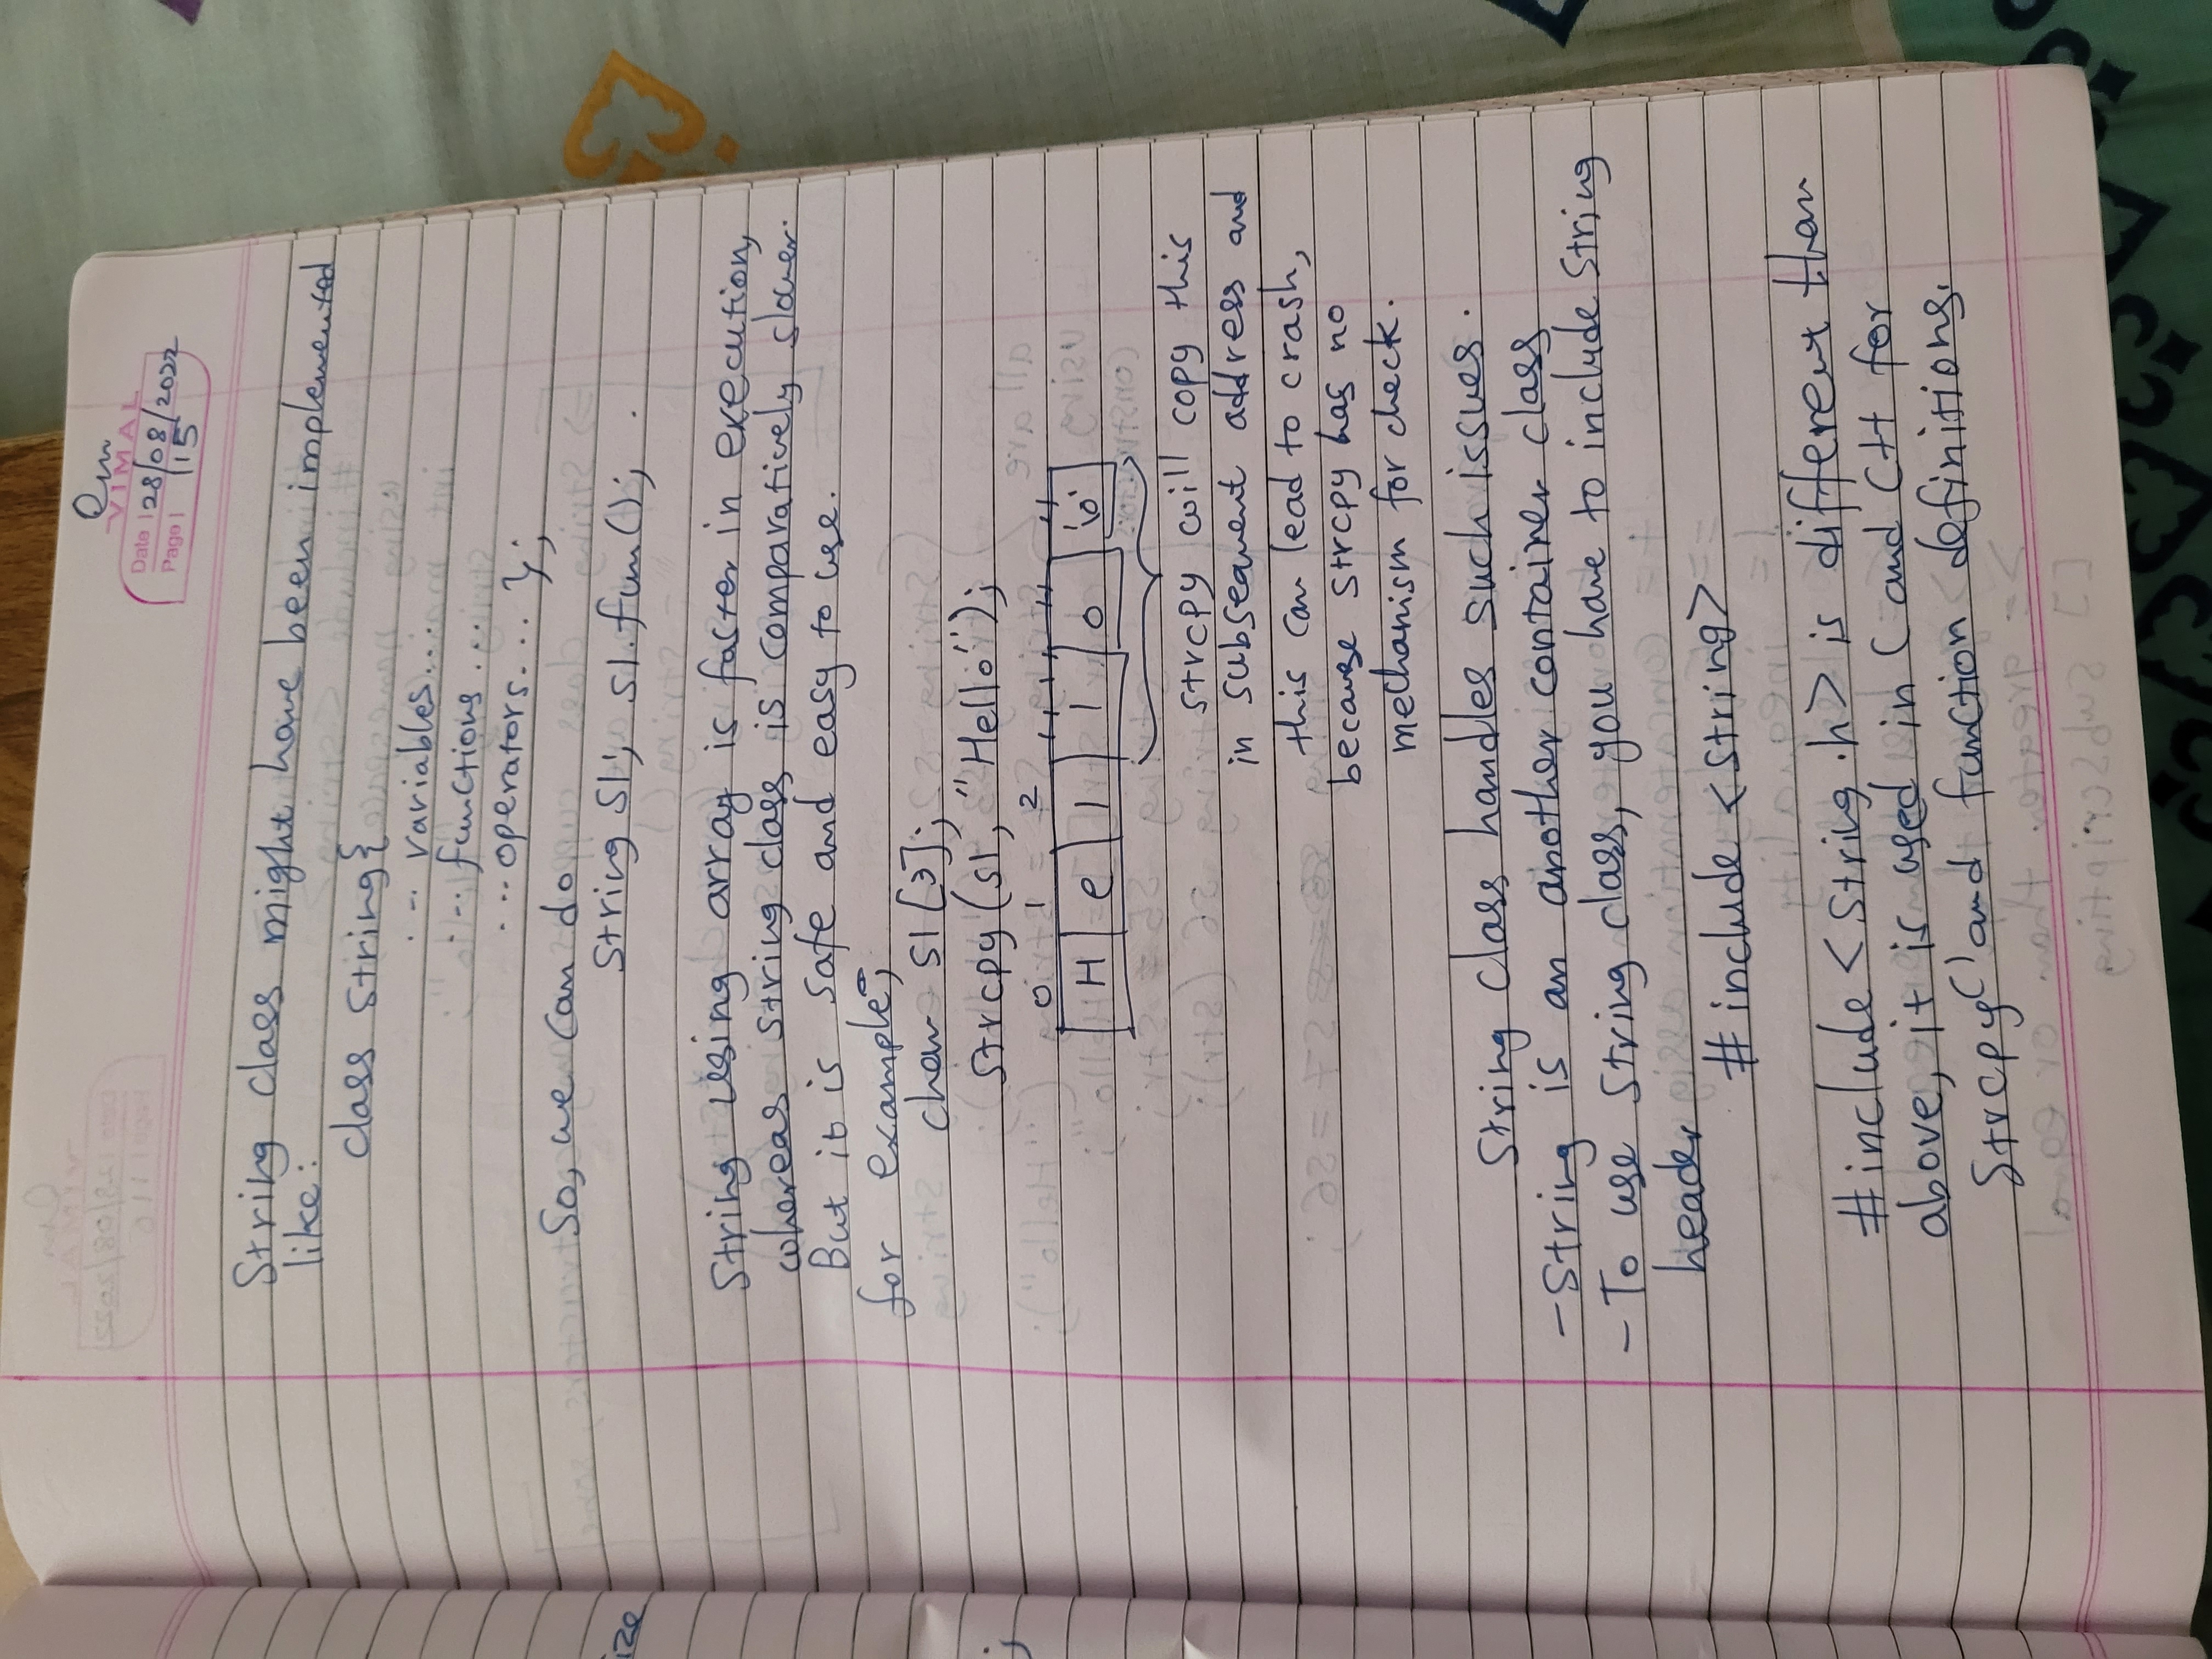 Om
VIMAL
Date | 28/08/2022
Page | 115
String class might have been implemented
like:
class string{
... variables...
... functions...
... operators... };
So, we can do
string s1; s1.fun();
String using array is faster in execution,
whereas string class is comparatively slower.
But it is safe and easy to use.
for example;
char s1[3];
strcpy(s1, "Hello");
0 1 2
H e l l o '\0'
strcpy will copy this
in subsequent address and
this can lead to crash,
because strcpy has no
mechanism for check.
String class handles such issues.
- String is an another container class
- To use string class, you have to include string
header
#include <string>
#include <string.h> is different than
above, it is used in C and C++ for
strcpy() and function definitions.
ize
;